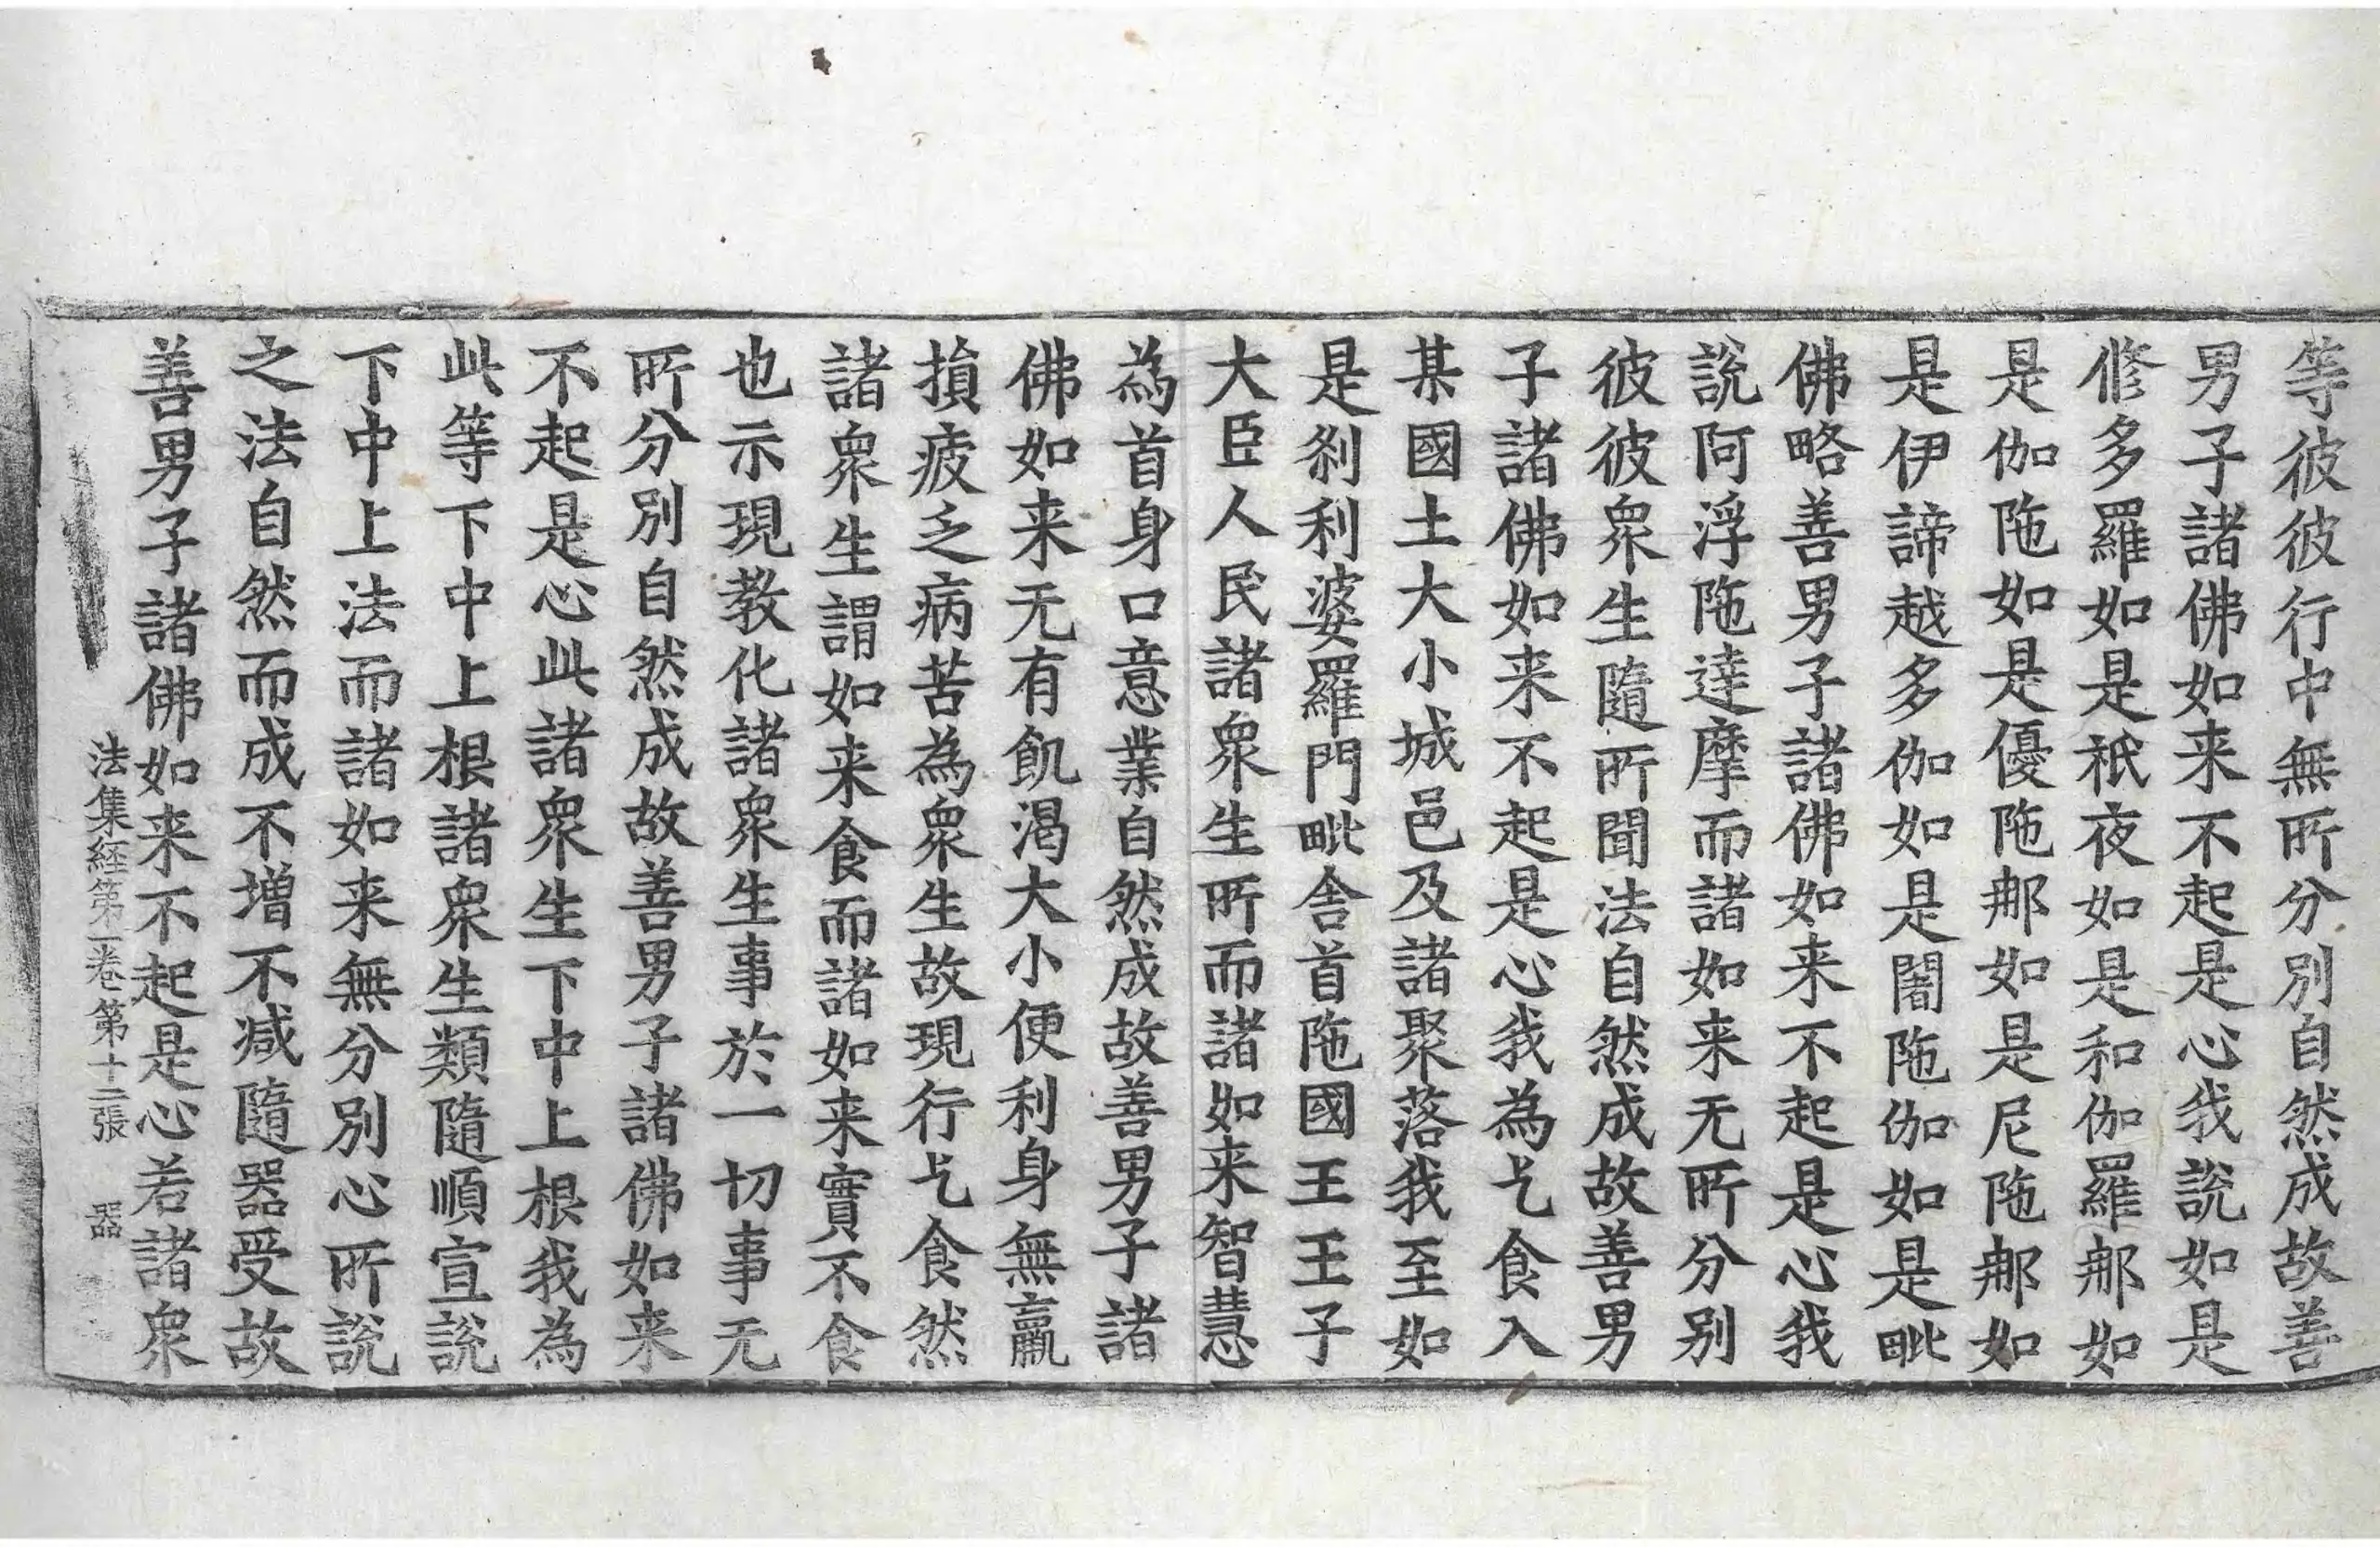 等彼彼行中無所分別自然成故善
男子諸佛如来不起是心我說如是
修多羅如是祇夜如是和伽羅那如
是伽陁如是優陁那如是尼陁那如
是伊諦越多伽如是闍陁伽如是毗
佛略善男子諸佛如来不起是心我
說阿浮陁達摩而諸如来无所分別
彼彼衆生隨所聞法自然成故善男
子諸佛如来不起是心我為乞食入
某國土大小城邑及諸聚落我至如
是剎利婆羅門毗舍首陁國王王子
大臣人民諸衆生所而諸如来智慧
為首身口意業自然成故善男子諸
佛如来无有飢渴大小便利身無羸
損疲乏病苦為衆生故現行乞食然
諸衆生謂如来食而諸如来實不食
也示現教化諸衆生事於一切事无
所分別自然成故善男子諸佛如来
不起是心此諸衆生下中上根我為
此等下中上根諸衆生類隨順宣說
下中上法而諸如来無分別心所說
之法自然而成不增不減隨器受故
善男子諸佛如来不起是心若諸衆
法集經第一卷 第十二張 器